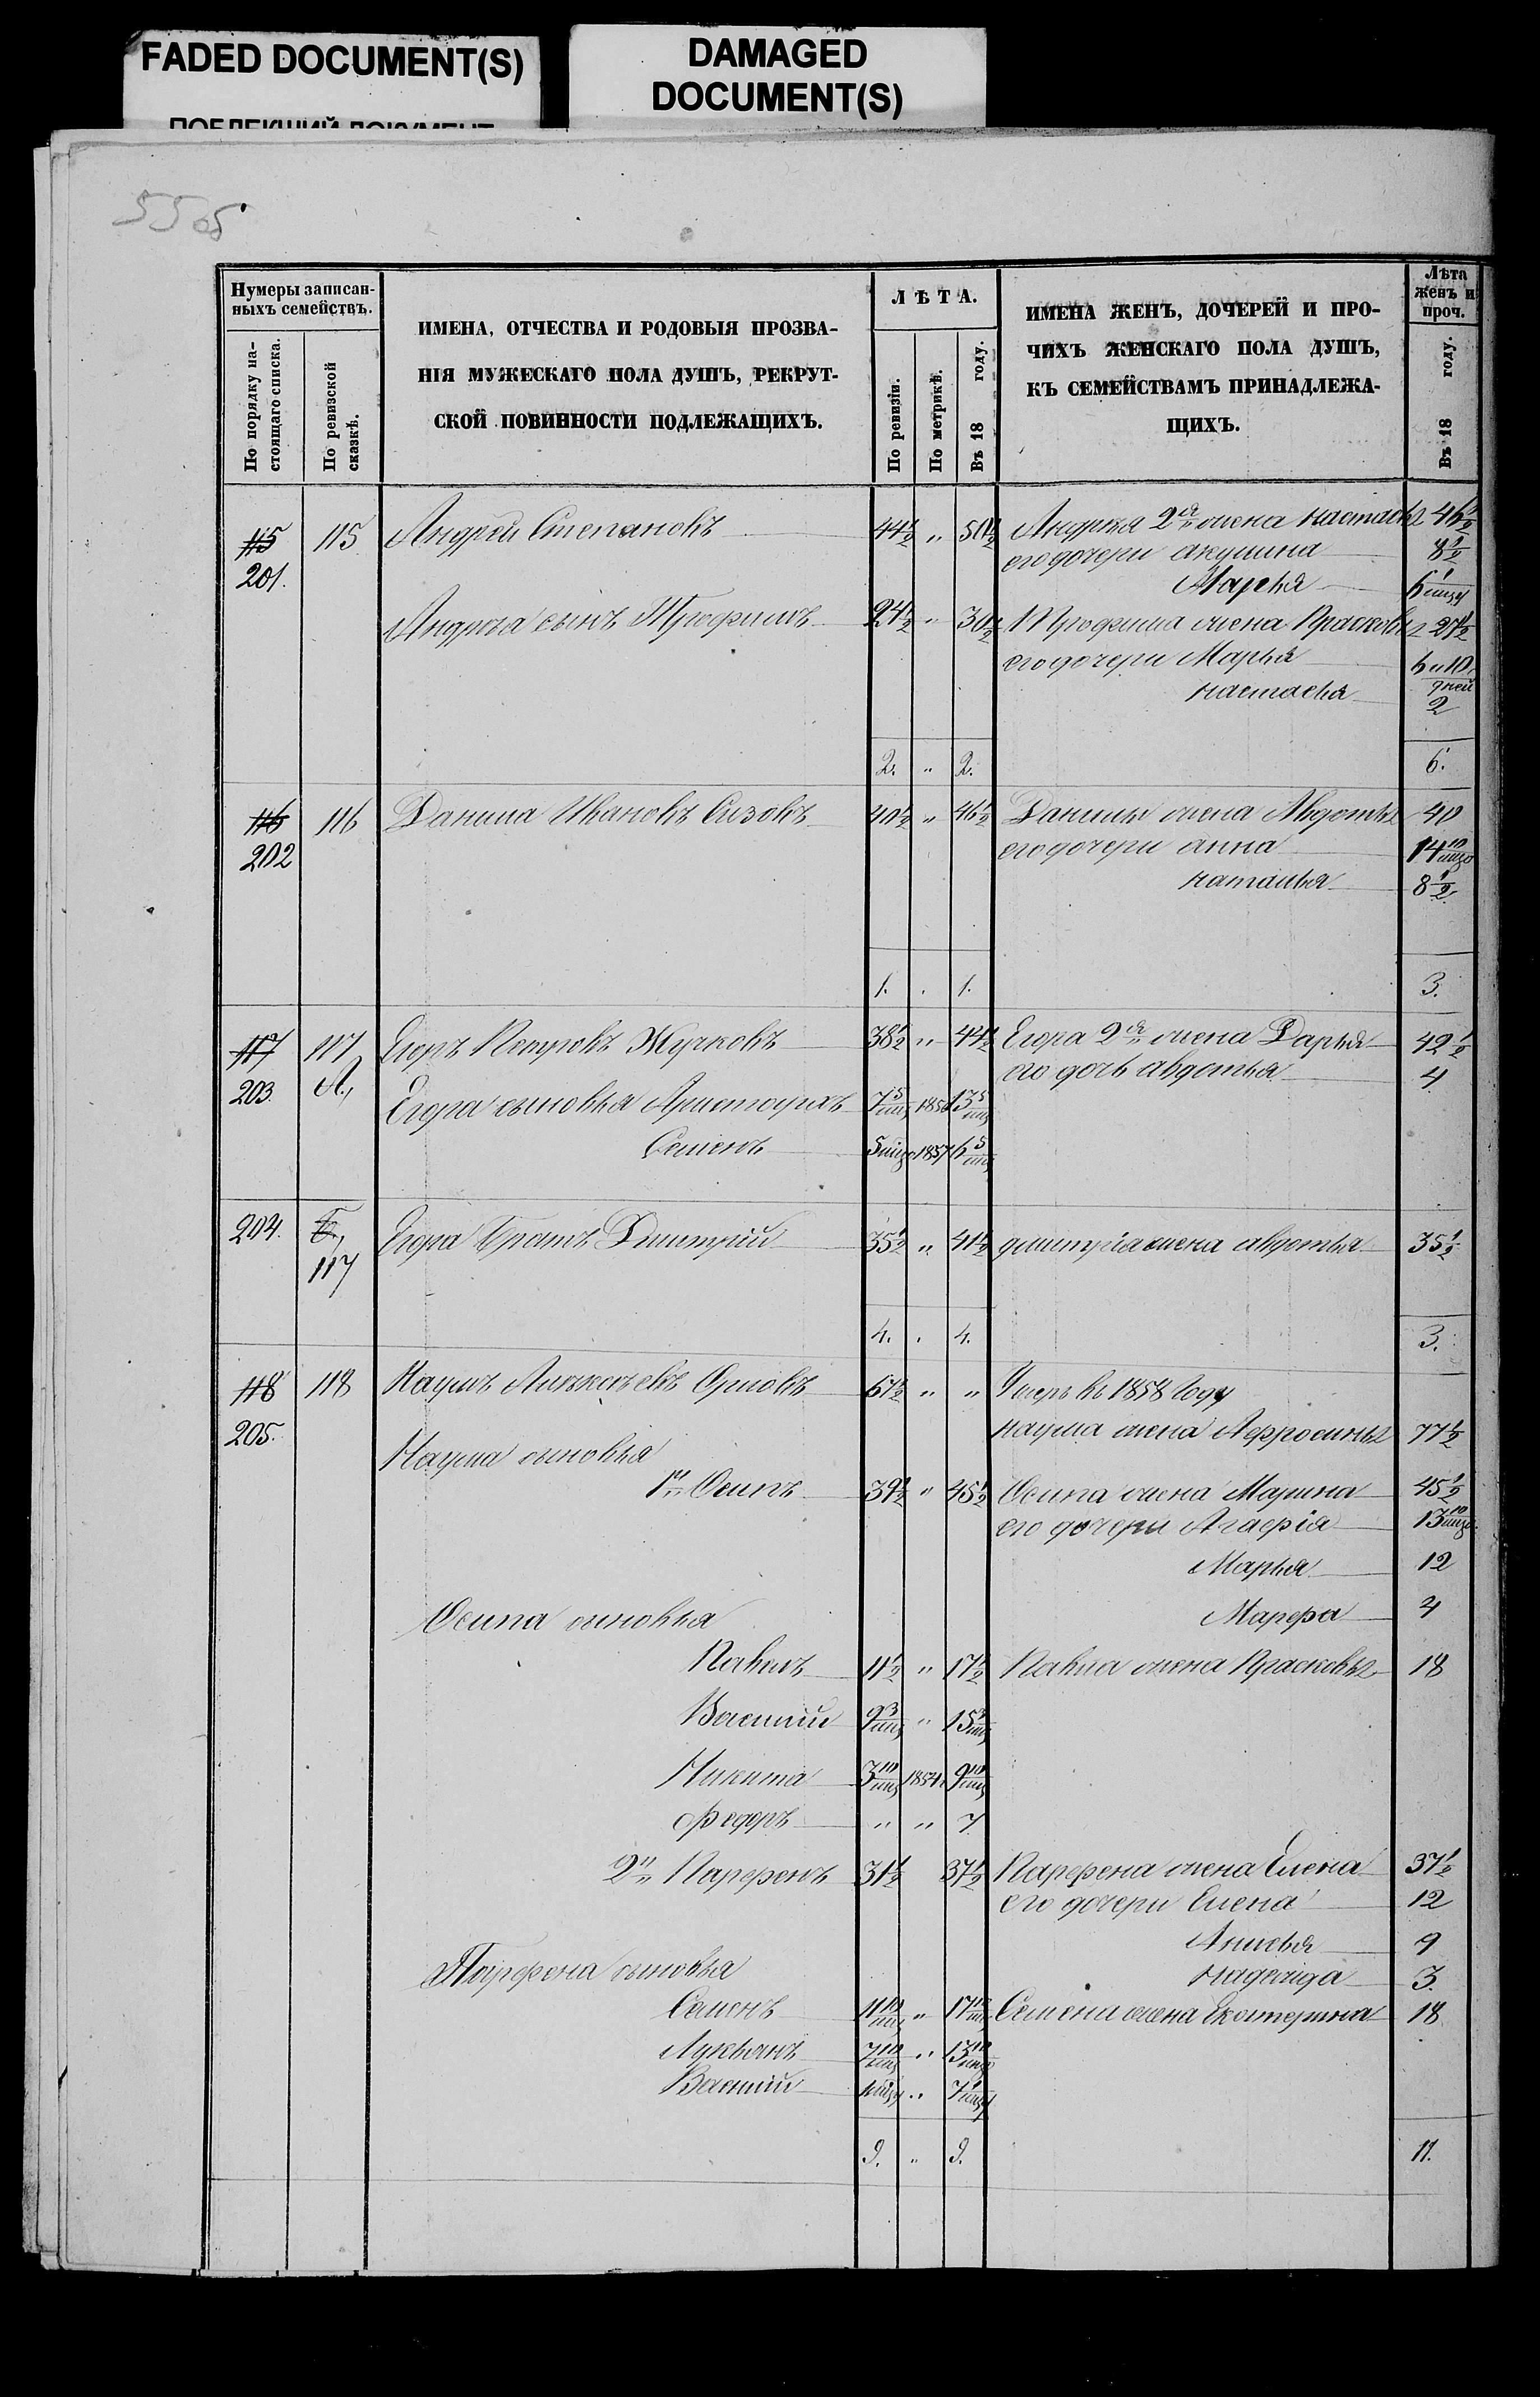 FADED DOCUMENT(S)
DAMAGED
DOCUMENT(S)
ПОБЛЕКШИЙ ДОКУМЕНТ
55 об
Нумеры записан-
ныхъ семействъ.
По порядку на-
стоящаго списка.
По ревизской
сказкѣ.
ИМЕНА, ОТЧЕСТВА И РОДОВЫЯ ПРОЗВА-
НІЯ МУЖЕСКАГО ПОЛА ДУШЪ, РЕКРУТ-
СКОЙ ПОВИННОСТИ ПОДЛЕЖАЩИХЪ.
ЛѢТА.
По ревизіи.
По метрикѣ.
Въ 18 году.
ИМЕНА ЖЕНЪ, ДОЧЕРЕЙ И ПРО-
ЧИХЪ ЖЕНСКАГО ПОЛА ДУШЪ,
КЪ СЕМЕЙСТВАМЪ ПРИНАДЛЕЖА-
ЩИХЪ.
Лѣта
женъ и
проч.
Въ 18 году.
115 115 Андрей Степановъ 44½ " 50½ Андрея 2я жена настасья 46½
201. его дочери акулина 8½
Марья
Андрея сынъ Трофимъ 24½ " 30½ Трофима жена Прасковья 27½
его дочери Марья 6 и 10 дней
настасья 2
2. " 2. 6.
116 116 Данила Ивановъ Сизовъ 40½ " 46½ Данилы жена Авдотья 40
202 его дочери анна 14 10
наталья 8½
1. . 1. 3.
117 117 Егоръ Петровъ Жучковъ 38½ " 44½ Егора 2я жена Дарья 42½
203. А, его дочь авдотья 4
Егора сыновья Аристархъ 7 5 1850 13 5
Семенъ 5 1857 6 5
204. Б, Егора братъ Дмитрій 35½ " 41½ дмитрія жена авдотья 35½
117
4. . 4. 3.
118 118 Наумъ Алексѣевъ Орловъ 67½ " " Умеръ въ 1858 году
205. наума жена Аффросинья 77½
Наума сыновья
1й Осипъ 39½ " 45½ Осипа жена Марина 45½
его дочери Агафія 13 10
Марья 12
Осипа сыновья Марфа 4
Павелъ 11½ " 17½ Павла жена Прасковья 18
Василій 9 3 " 15 3
Никита 3 10 1854 9 10
Федоръ " " 7
2й Парфенъ 31½ 37½ Парфена жена Елена 37½
его дочери Елена 12
Анисья 9
Парфена сыновья надежда 3.
Семенъ 11 10 " 17 10 Семена жена Екатерина 18
Лукьянъ 7 10 " 13 10
Василій " 7
9. " 9. 11.